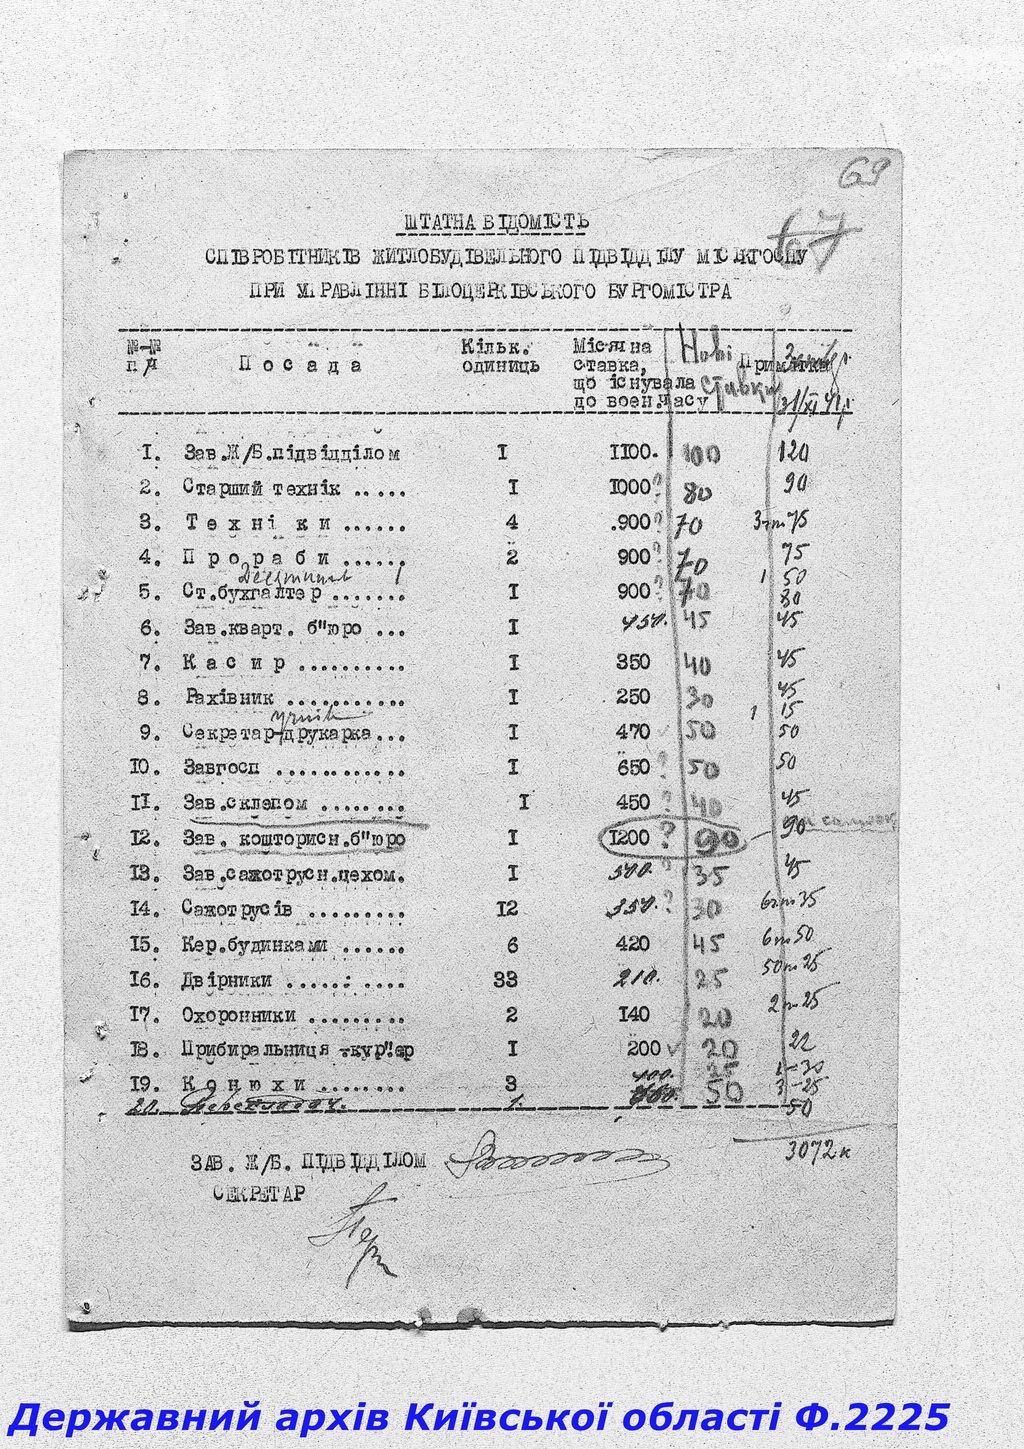 69
67
ШТАТНА ВІДОМІСТЬ
СПІВРОБІТНИКІВ ЖИТЛОБУДІВЕЛЬНОГО ПІДВІДДІЛУ МІСЬКГОСПУ
ПРИ УПРАВЛІННІ БІЛОЦЕРКІВСЬКОГО БУРГОМІСТРА
№-№ п/п Посада Кільк. одиниць Місячна ставка, що існувала до воен.часу Нові ставки Примітка
31/XI 41р.
1. Зав.Ж/Б.підвідділом I 1100. 100 120
2. Старший технік ..... I 1000? 80 90
3. Техніки ...... 4 .900? 70 3 по 75
4. Прораби ...... 2 900? 70 75
Десятник 1 1 50
5. Ст.бухгалтер ....... I 900? 70 80
6. Зав.кварт. б"юро ... I 450. 45 45
7. Касир .......... I 350 40 45
8. Рахівник ........... I 250 30 45
учнів 1 15
9. Секретар-друкарка... I 470 50 50
10. Завгосп ........... I 650? 50 50
11. Зав.склепом ........ I 450? 40 45
12. Зав. кошторисн.б"юро I 1200? 90 90
13. Зав.сажотрусн.цехом. I 500.? 35 45
14. Сажотрусів ......... 12 350.? 30 6 по 35
15. Кер.будинками ...... 6 420 45 6 по 50
16. Двірники ......: .... 33 210. 25 50 по 25
17. Охоронники ......... 2 140 20 2 по 25
18. Прибиральниця -кур"єр I 200 20 22
19. Конюхи ........ 3 400. 25 1-30 3-25
20. Перекладач. 1. 50 50
3072 к
ЗАВ. Ж/Б. ПІДВІДДІЛОМ
СЕКРЕТАР
Державний архів Київської області Ф.2225